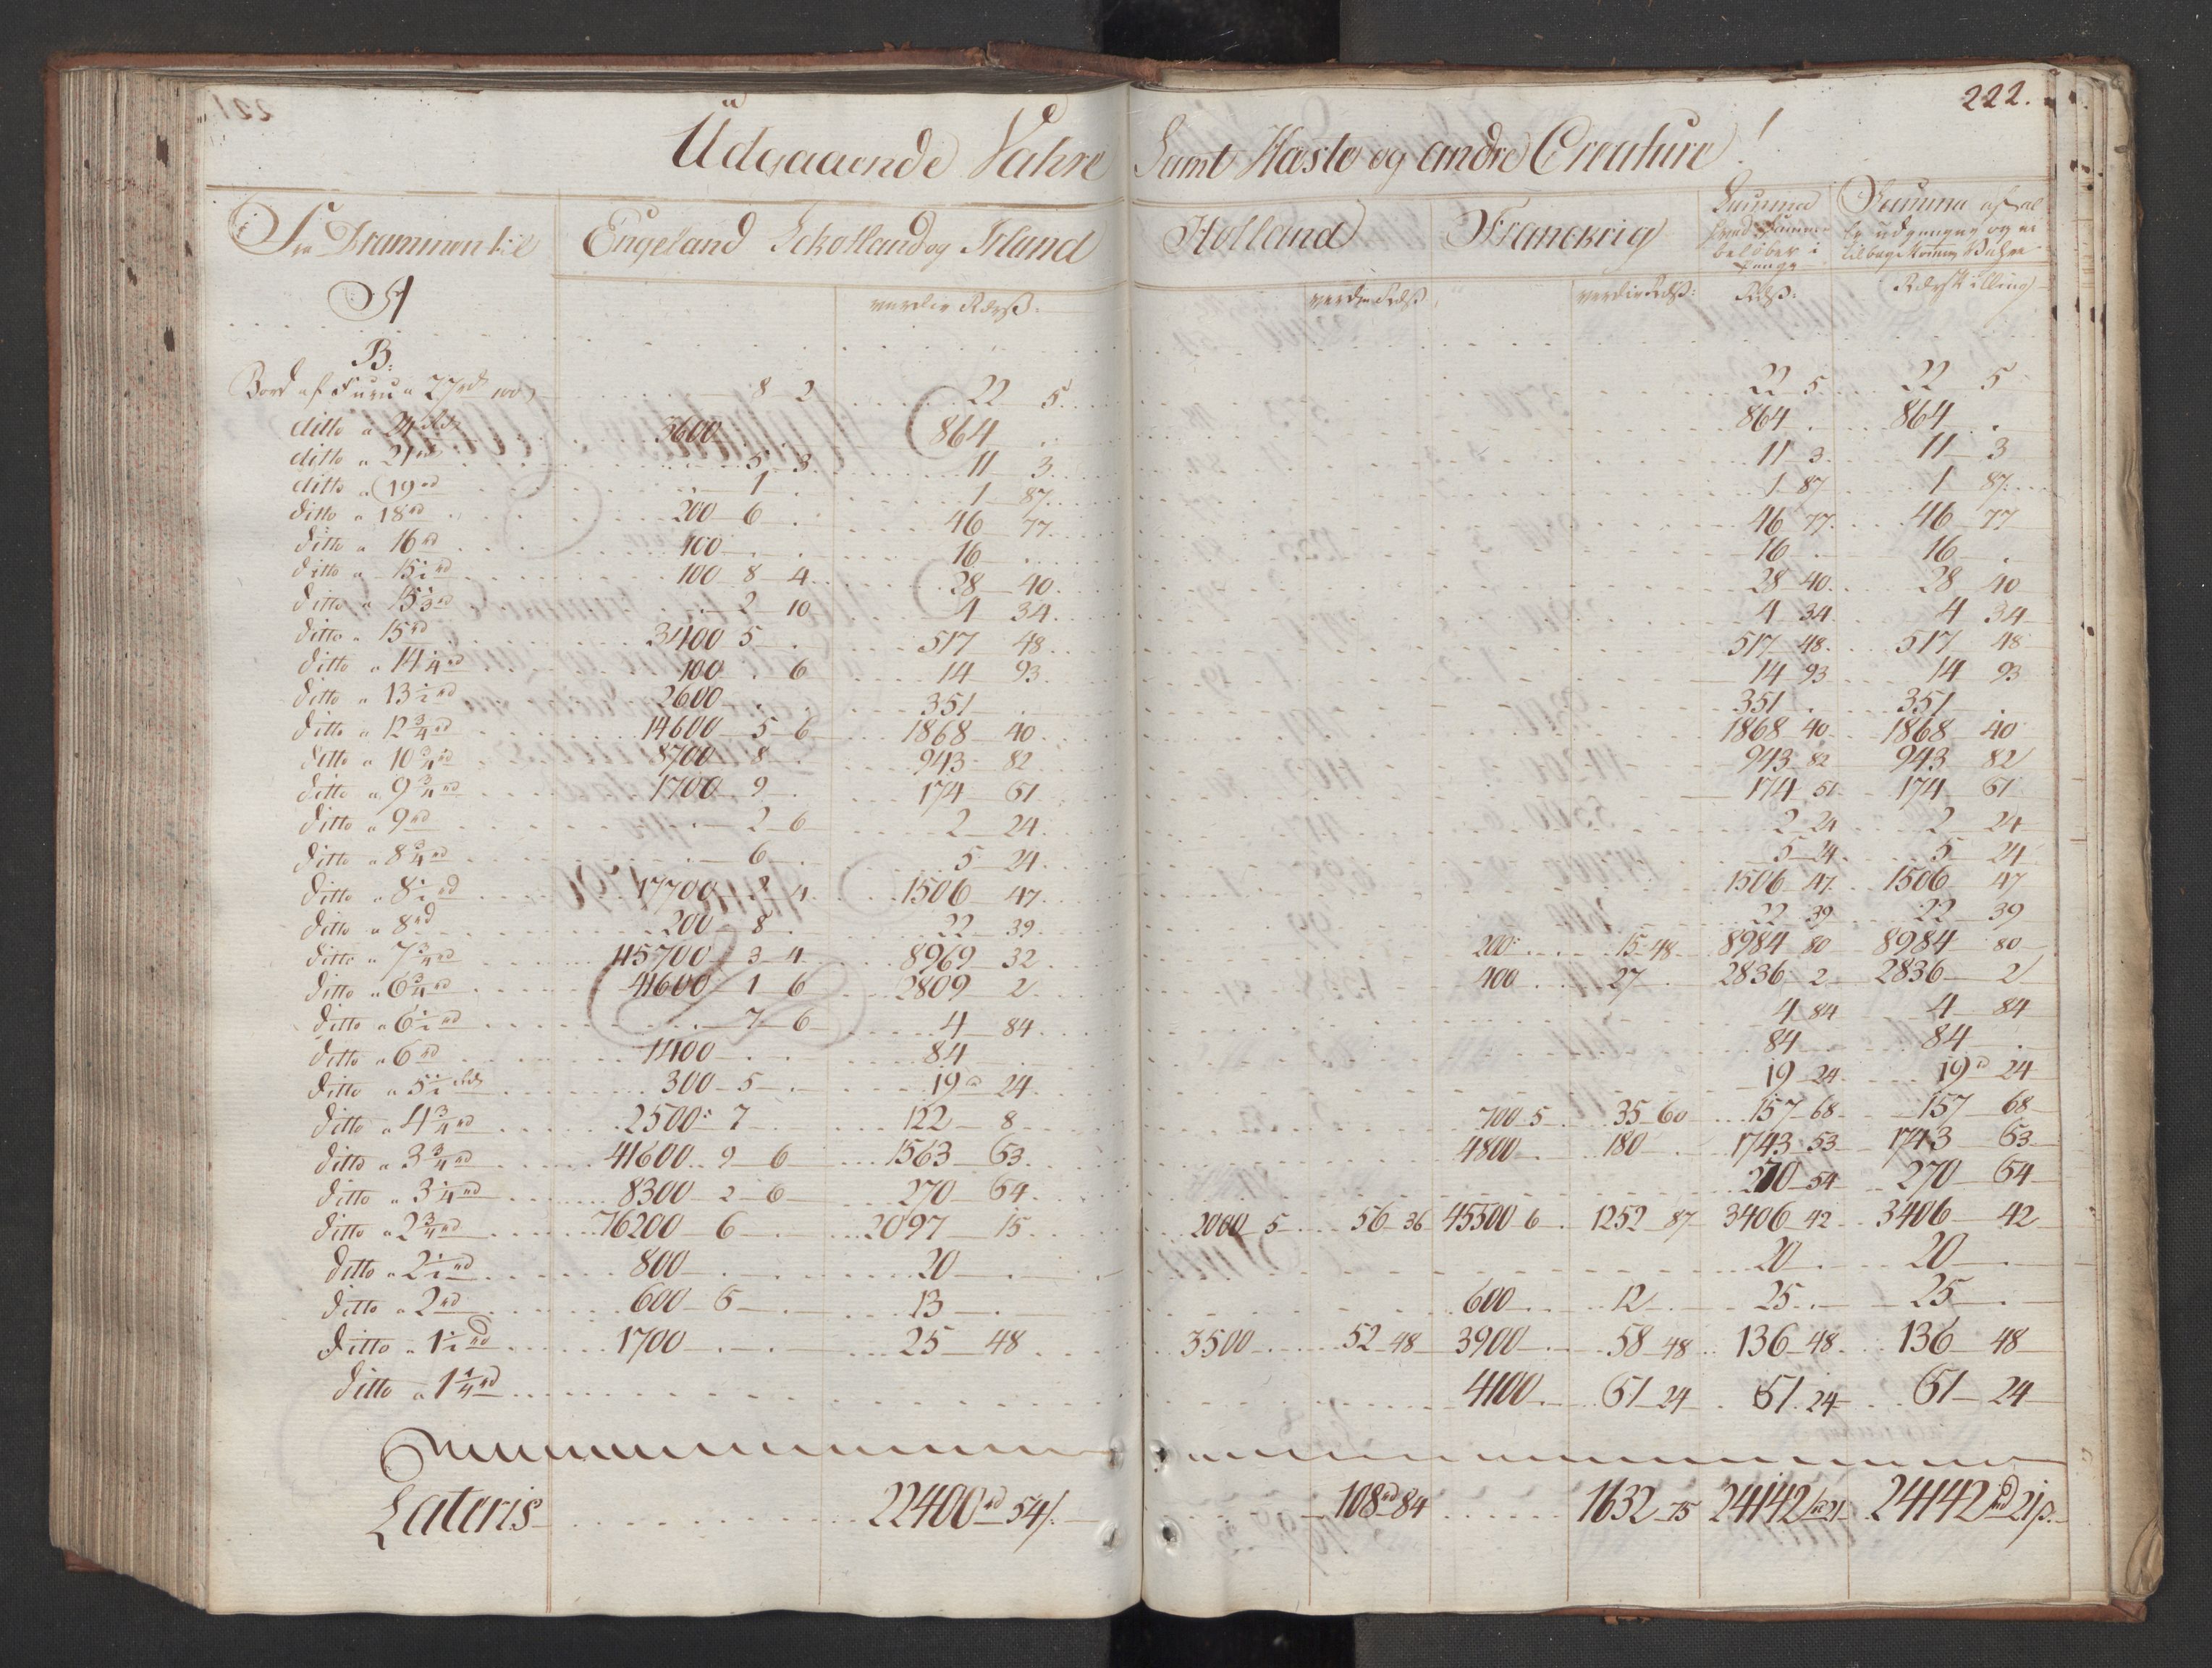 222.
Udgaaende Vahre Samt Hæste og andre Creature!
Fra Drammen til Engeland Schotland og Irland Holland Franckrig Summa hvad Summen beløber i Penge Summa af alle udgangne og ei tilbage komne Vahre
A værdie Rdrß: værdie Rdß værdie Rdß: Rdß: Rdr Skilling
B:
Bord af Furu a 27 rd 100 8 2 22 5 22 5 22 5
ditto a 24 rd 3600 864 864 864
ditto a 21 rd 5 3 11 3 11 3 11 3
ditto a 19 rd 1 1 87 1 87 1 87
ditto a 18 rd 200 6 46 77 46 77 46 77
ditto a 16 rd 100 16 16 16
ditto a 15 1/2 rd 100 8 4 28 40 28 40 28 40
ditto a 15 1/3 rd 2 10 4 34 4 34 4 34
ditto a 15 rd 3400 5 517 48 517 48 517 48
ditto a 14 1/4 rd 100 6 14 93 14 93 14 93
ditto a 13 1/2 rd 2600 351 351 351
ditto a 12 3/4 rd 14600 5 6 1868 40 1868 40 1868 40
ditto a 10 3/4 rd 8700 8 943 82 943 82 943 82
ditto a 9 3/4 rd 1700 9 174 51 174 51 174 51
ditto a 9 rd 2 6 2 24 2 24 2 24
ditto a 8 3/4 rd 6 5 24 5 24 5 24
ditto a 8 1/2 rd 17700 2 4 1506 47 1506 47 1506 47
ditto a 8 rd 200 8 22 39 22 39 22 39
ditto a 7 3/4 rd 115700 3 4 8969 32 200 15 48 8984 80 8984 80
ditto a 6 3/4 rd 41600 1 6 2809 2 400 27 2836 2 2836 2
ditto a 6 1/2 rd 7 6 4 84 4 84 4 84
ditto a 6 rd 1400 84 84 84
ditto a 5 1/2 rd 300 5 19 24 19 24 19 24
ditto a 4 3/4 rd 2500 7 122 8 700 5 35 60 157 68 157 68
ditto a 3 3/4 rd 41600 9 6 1563 53 4800 180 1743 53 1743 53
ditto a 3 1/4 rd 8300 2 6 270 54 270 54 270 54
ditto a 2 3/4 rd 76200 6 2097 15 2000 5 56 36 45500 6 1252 87 3406 42 3406 42
ditto a 2 1/2 rd 800 20 20 20
ditto a 2 rd 600 5 13 600 12 25 25
ditto a 1 1/2 rd 1700 25 48 3500 52 48 3900 58 48 136 48 136 48
ditto a 1 1/4 rd 4100 51 24 51 24 51 24
Lateris 22400 rd 54ß. 108 rd 84 1632 75 24142 rd 21 24142 rd 21ß.